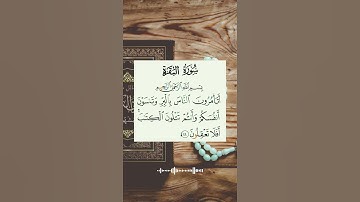 سُورَةُ البَقَرَةِ
بِسْمِ اللَّهِ الرَّحْمَٰنِ الرَّحِيمِ
أَتَأْمُرُونَ ٱلنَّاسَ بِٱلْبِرِّ وَتَنسَوْنَ
أَنفُسَكُمْ وَأَنتُمْ تَتْلُونَ ٱلْكِتَٰبَ
أَفَلَا تَعْقِلُونَ ﴿٤٤﴾